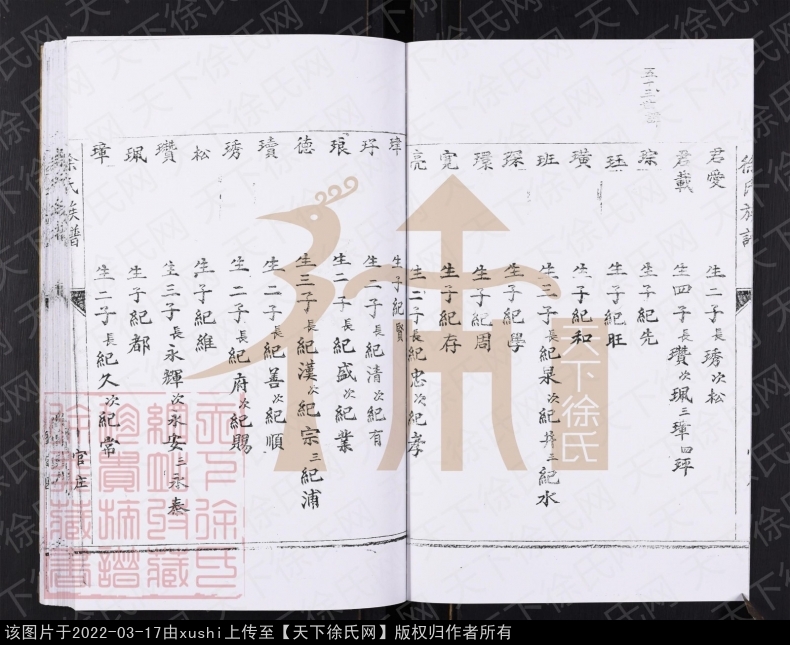 徐氏族譜
君愛 生二子長琇次松
君載 生四子長瓚次珮三璋四玶
琮 生子紀先
珏 生子紀旺
璜 生子紀和
班 生三子長紀杲次紀昇三紀水
琛 生子紀學
環 生子紀周
寛 生子紀存
亮 生二子長紀忠次紀孝
瑋 生子紀賢
玗 生二子長紀清次紀有
琅 生二子長紀盛次紀業
德 生三子長紀漢次紀宗三紀浦
璝 生二子長紀善次紀順
琇 生二子長紀府次紀賜
松 生子紀維
瓚 生三子長永輝次永安三永泰
珮 生子紀都
璋 生二子長紀久次紀常
徐氏族譜
官庄
天下徐氏
天下徐氏網
该图片于2022-03-17由xushi上传至【天下徐氏网】版权归作者所有